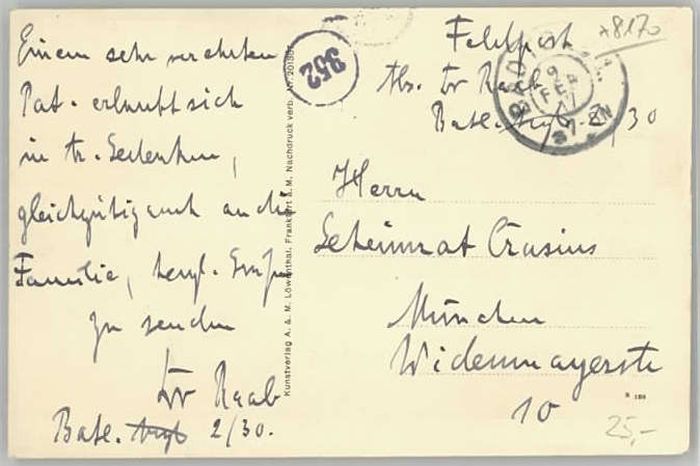 Einem sehr verehrten
Pat. erlaubt sich
in tr. Gedenken,
gleichzeitig auch an die
Familie, herzl. Grüße
zu senden
Dr Raab
Batl. 2/30.
952
Kunstverlag A. & M. Löwenthal, Frankfurt a. M. Nachdruck verb.
Feldpost
Abs. Dr Raab
Batl. 2/30
BAD
9 FEB
7-8 N
+8170
Herrn
Geheimrat Crusius
München
Widenmayerstr
10
25,-